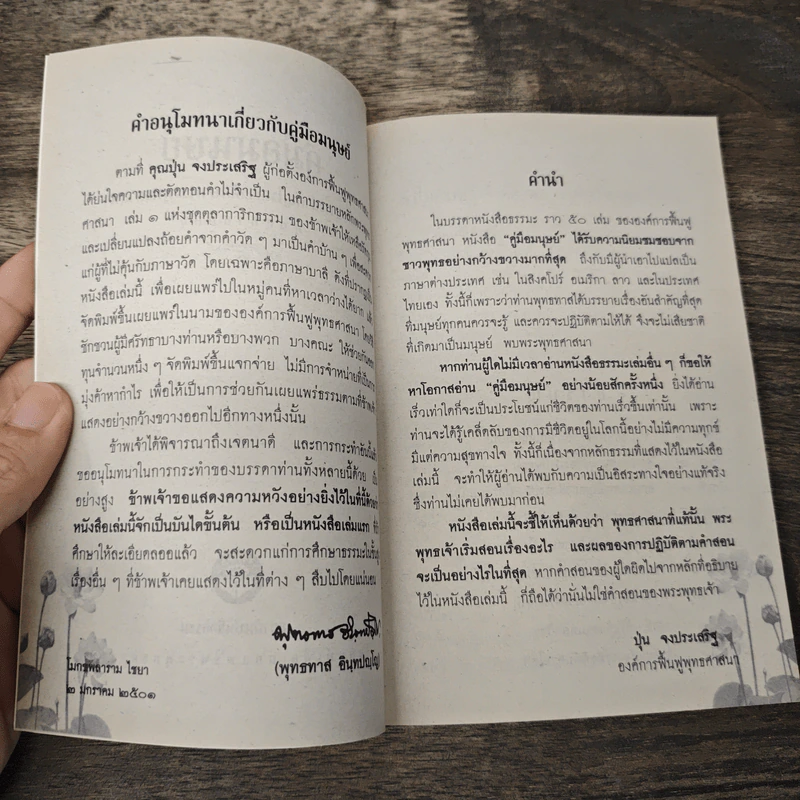 คำอนุโมทนาเกี่ยวกับคู่มือมนุษย์
ตามที่ คุณปุ่น จงประเสริฐ ผู้ก่อตั้งองค์การฟื้นฟูพุทธศาสนา
ได้ย่นใจความและตัดทอนคำไม่จำเป็น ในคำบรรยายหลักพระพุทธ
ศาสนา เล่ม ๑ แห่งชุดตุลาการิกธรรม ของข้าพเจ้าให้เหลือน้อย
และเปลี่ยนแปลงถ้อยคำจากคำวัด ๆ มาเป็นคำบ้าน ๆ เพื่อ
แก่ผู้ที่ไม่คุ้นกับภาษาวัด โดยเฉพาะคือภาษาบาลี ดังที่ปรากฏ
หนังสือเล่มนี้ เพื่อเผยแพร่ไปในหมู่คนที่หาเวลาว่างได้ยาก แล้ว
จัดพิมพ์ขึ้นเผยแพร่ในนามขององค์การฟื้นฟูพุทธศาสนา โดย
ชักชวนผู้มีศรัทธาบางท่านหรือบางพวก บางคณะ ให้ช่วยกัน
ทุนจำนวนหนึ่ง ๆ จัดพิมพ์ขึ้นแจกจ่าย ไม่มีการจำหน่ายที่เป็น
มุ่งค้าหากำไร เพื่อให้เป็นการช่วยกันเผยแพร่ธรรมตามที่ข้าพเจ้า
แสดงอย่างกว้างขวางออกไปอีกทางหนึ่งนั้น
ข้าพเจ้าได้พิจารณาถึงเจตนาดี และการกระทำอันนี้แล้ว
ขออนุโมทนาในการกระทำของบรรดาท่านทั้งหลายนี้ด้วย เป็น
อย่างสูง ข้าพเจ้าขอแสดงความหวังอย่างยิ่งไว้ในที่นี้ด้วยว่า
หนังสือเล่มนี้จักเป็นบันไดขั้นต้น หรือเป็นหนังสือเล่มแรก ที่
ศึกษาให้ละเอียดลออแล้ว จะสะดวกแก่การศึกษาธรรมะในขั้นสูง
เรื่องอื่น ๆ ที่ข้าพเจ้าเคยแสดงไว้ในที่ต่าง ๆ สืบไปโดยแน่นอน
พุทธทาส อินทปัญโญ
(พุทธทาส อินฺทปญฺโญ)
โมกขพลาราม ไชยา
๒ มกราคม ๒๕๐๑
คำนำ
ในบรรดาหนังสือธรรมะ ราว ๕๐ เล่ม ขององค์การฟื้นฟู
พุทธศาสนา หนังสือ “คู่มือมนุษย์” ได้รับความนิยมชมชอบจาก
ชาวพุทธอย่างกว้างขวางมากที่สุด ถึงกับมีผู้นำเอาไปแปลเป็น
ภาษาต่างประเทศ เช่น ในสิงคโปร์ อเมริกา ลาว และในประเทศ
ไทยเอง ทั้งนี้ก็เพราะว่าท่านพุทธทาสได้บรรยายเรื่องอันสำคัญที่สุด
ที่มนุษย์ทุกคนควรจะรู้ และควรจะปฏิบัติตามให้ได้ จึงจะไม่เสียชาติ
ที่เกิดมาเป็นมนุษย์ พบพระพุทธศาสนา
หากท่านผู้ใดไม่มีเวลาอ่านหนังสือธรรมะเล่มอื่น ๆ ก็ขอให้
หาโอกาสอ่าน “คู่มือมนุษย์” อย่างน้อยสักครั้งหนึ่ง ยิ่งได้อ่าน
เร็วเท่าใดก็จะเป็นประโยชน์แก่ชีวิตของท่านเร็วขึ้นเท่านั้น เพราะ
ท่านจะได้รู้เคล็ดลับของการมีชีวิตอยู่ในโลกนี้อย่างไม่มีความทุกข์
มีแต่ความสุขทางใจ ทั้งนี้ก็เนื่องจากหลักธรรมที่แสดงไว้ในหนังสือ
เล่มนี้ จะทำให้ผู้อ่านได้พบกับความเป็นอิสระทางใจอย่างแท้จริง
ซึ่งท่านไม่เคยได้พบมาก่อน
หนังสือเล่มนี้จะชี้ให้เห็นด้วยว่า พุทธศาสนาที่แท้นั้น พระ
พุทธเจ้าเริ่มสอนเรื่องอะไร และผลของการปฏิบัติตามคำสอน
จะเป็นอย่างไรในที่สุด หากคำสอนของผู้ใดผิดไปจากหลักที่อธิบาย
ไว้ในหนังสือเล่มนี้ ก็ถือได้ว่านั่นไม่ใช่คำสอนของพระพุทธเจ้า
ปุ่น จงประเสริฐ
องค์การฟื้นฟูพุทธศาสนา